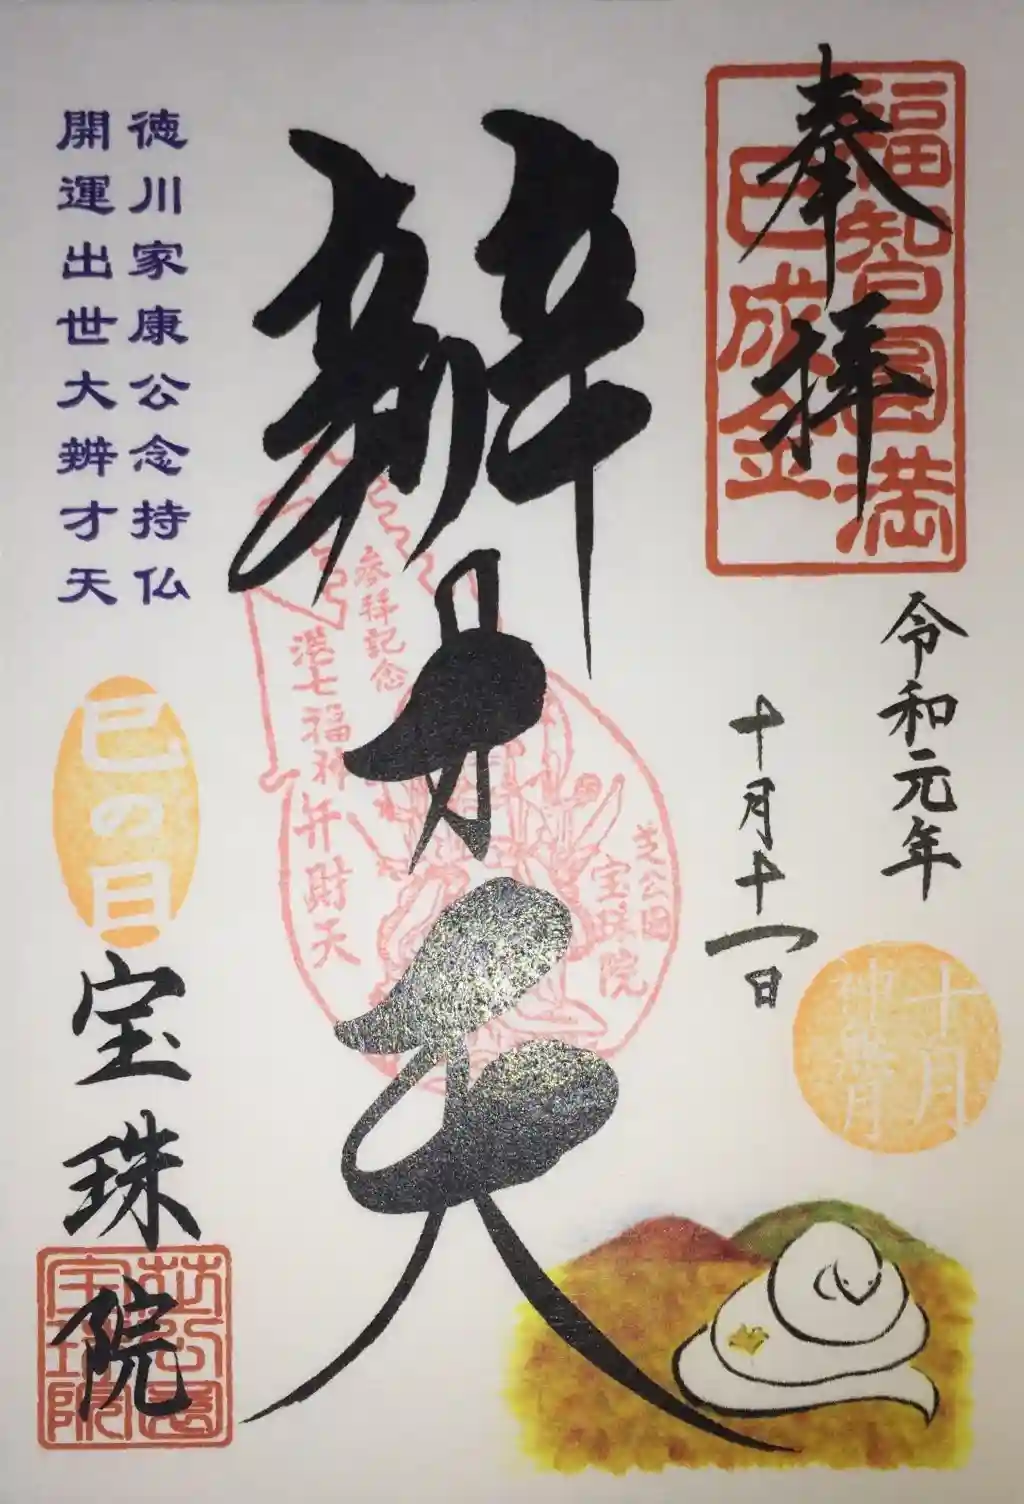 奉拝
福智円満
巳成金
令和元年
十月十一日
十月
辨才天
参拝記念
港七福神弁財天
芝公園
宝珠院
徳川家康公念持仏
開運出世大辨才天
巳の日
宝珠院
芝公園
宝珠院